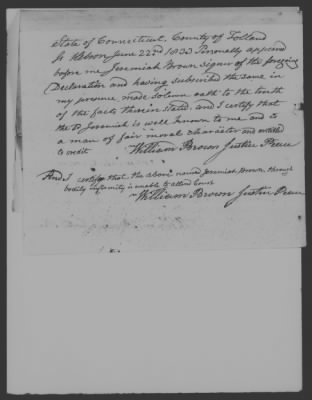 State of Connecticut, County of Tolland
ss Hebron June 22nd 1833 Personally appeared
before me Jeremiah Brown signer of the foregoing
Declaration and having subscribed the same in
my presence made Solemn oath to the truth
of the facts therein Stated. and I certify that
the sd Jeremiah is well known to me and is
a man of fair moral character and entitled
to credit William Brown Justice Peace
And I certify that the above named Jeremiah Brown through
bodily infirmity is unable to attend Court
William Brown Justice Peace